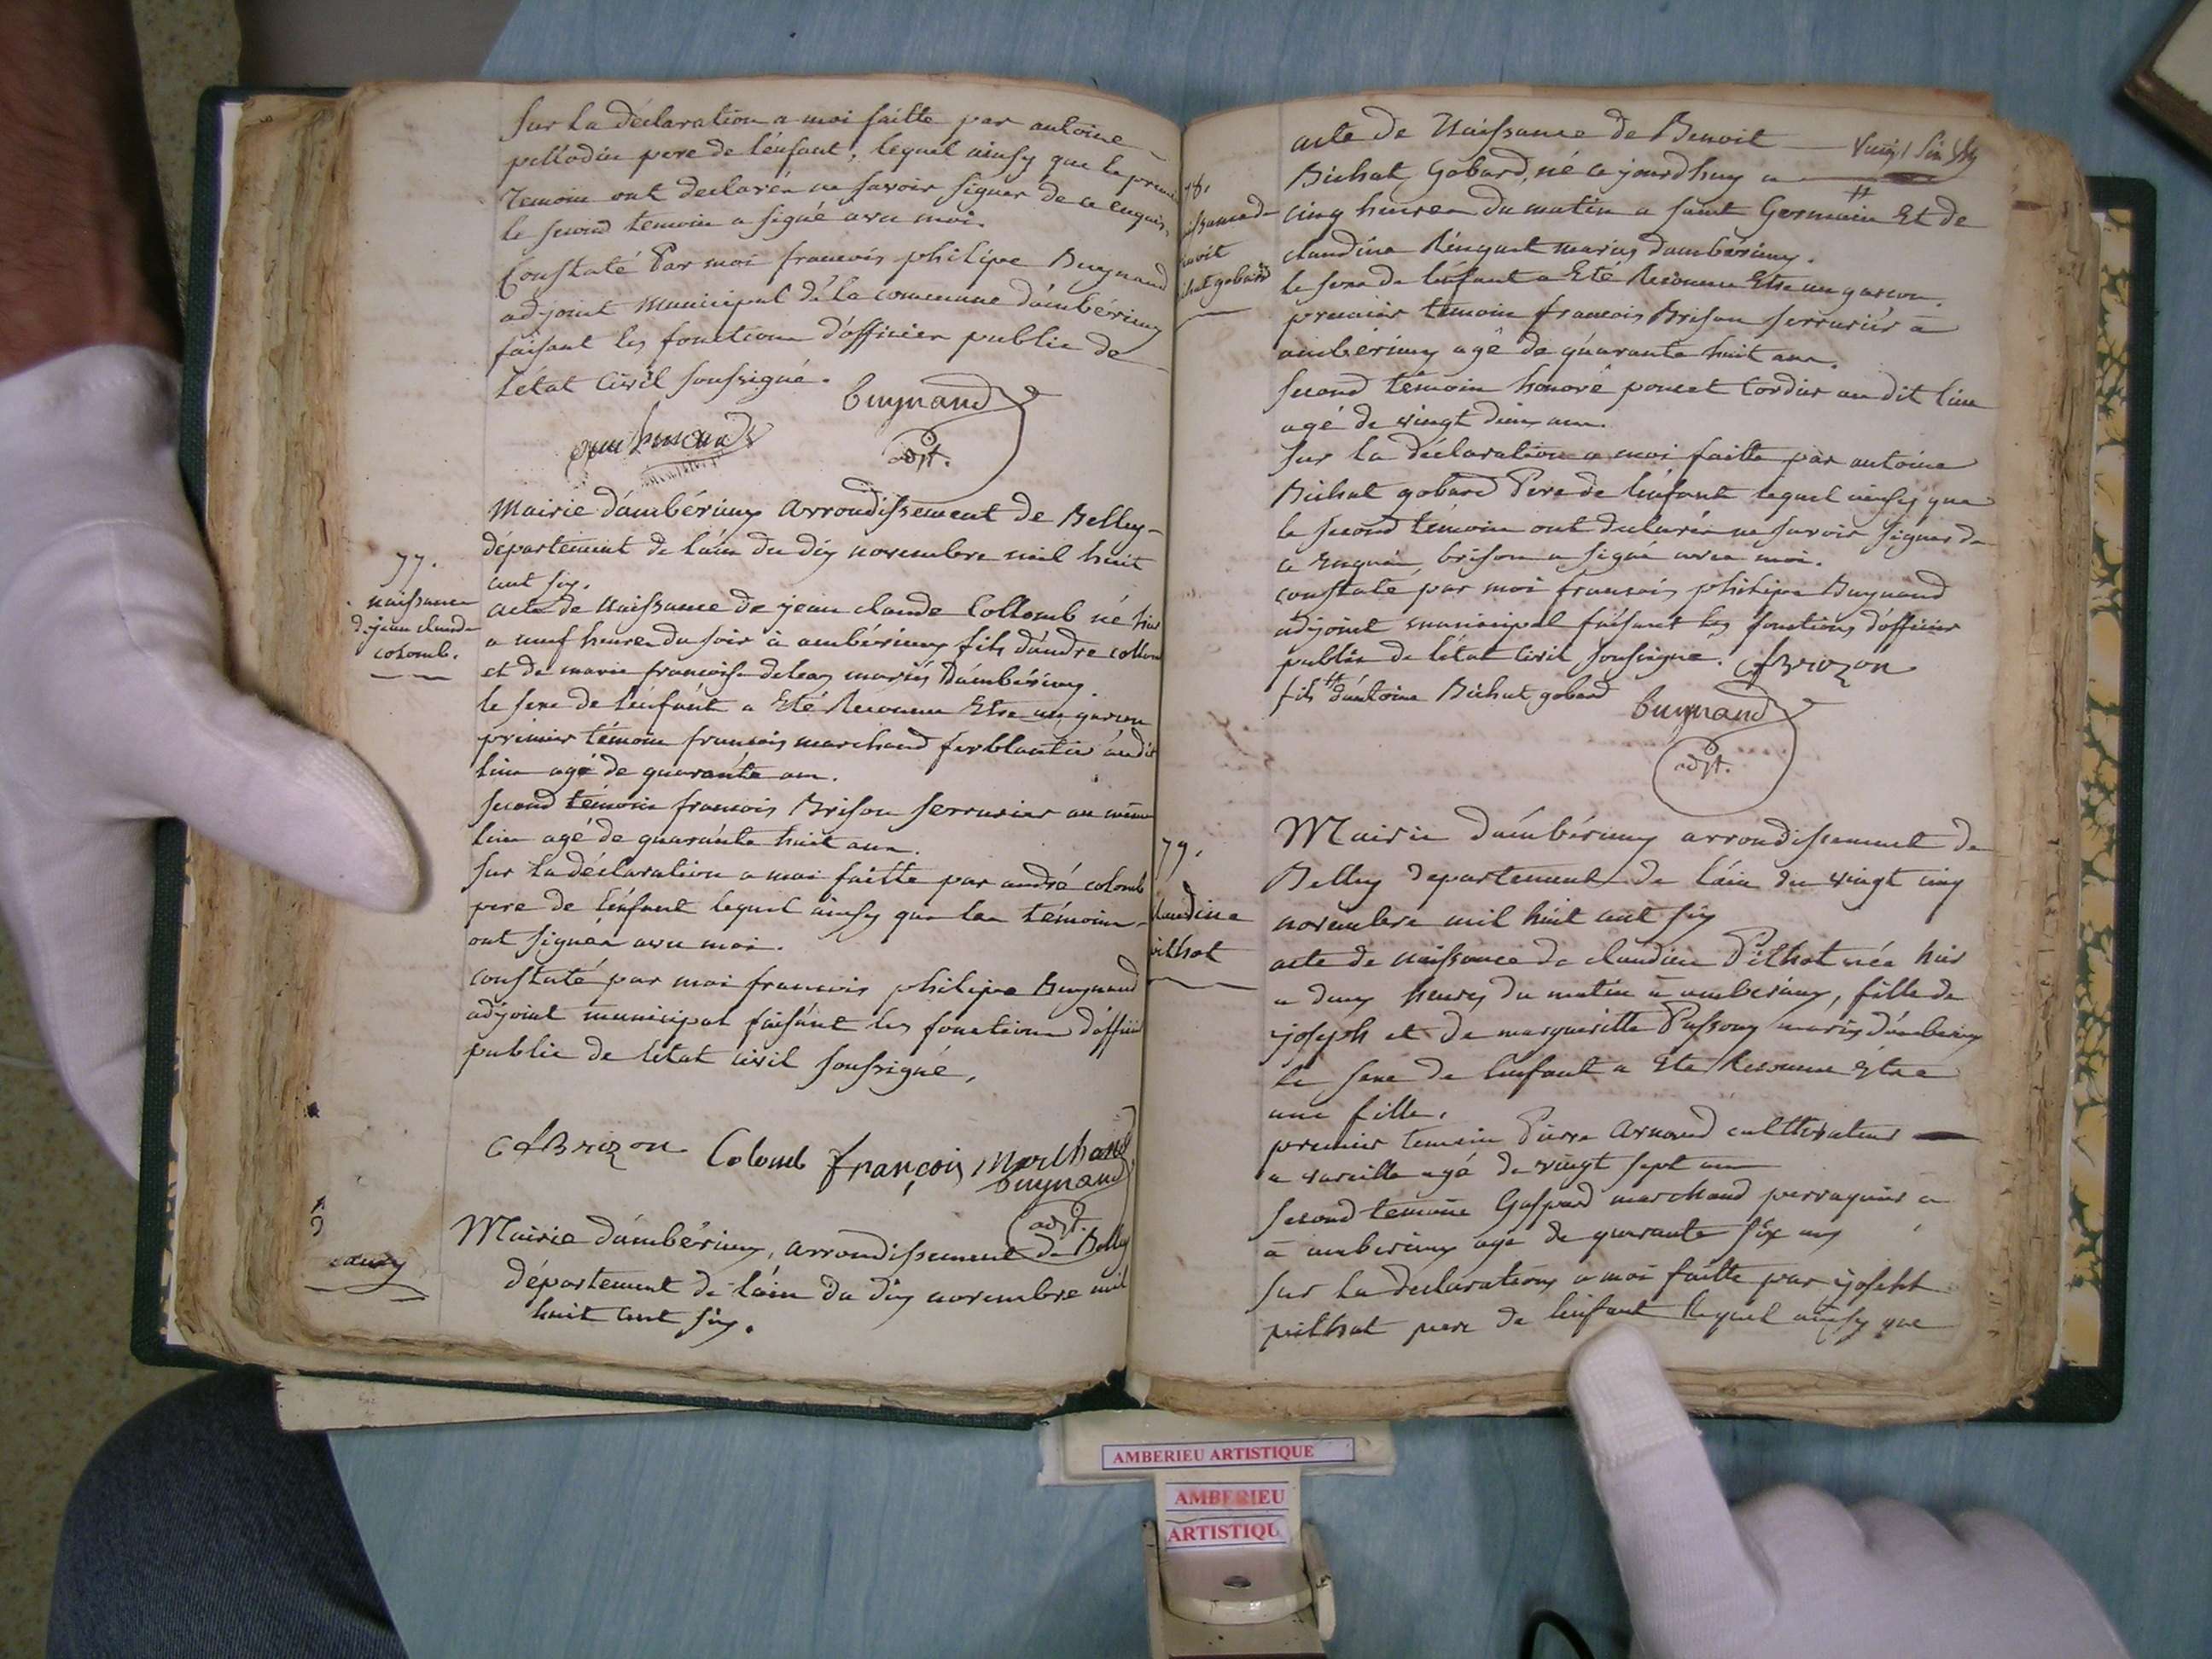 Sur la déclaration a moi faitte par antoine
pellodin pere de l'enfant, lequel ainsy que le premier
temoin ont declarés ne savoir signer de ce enquis,
le second temoin a signé avec moi.
Constaté Par moi francois philipe Buynand
adjoint municipal de la commune d'ambérieux
faisant les fonctions d'officier public de
l'état Civil soussigné.
buynand
adjt.
Mairie d'ambérieux arrondissement de Belley
département de l'ain du dix novembre mil huit
cent six.
77.
naissance
de jean claude
colomb.
acte de Naissance de jean claude Collomb né hier
a neuf heures du soir à ambérieux fils d'andré collomb
et de marie francoise mariés d'ambérieux.
le sexe de l'enfant a Eté Reconnu Etre un garcon
premier témoin francois marchand ferblantier audit
lieu agé de quarante ans.
second témoin francois Brison serrurier au même
lieu agé de quarante huit ans.
Sur la déclaration a moi faitte par andré colomb
pere de l'enfant lequel ainsy que les témoins
ont signés avec moi.
constaté par moi francois philipe Buynand
adjoint municipal faisant les fonctions d'officier
public de l'état civil soussigné,
Brizon Colomb françois Marchand
buynand
adjt.
Mairie d'ambérieux, arrondissement de Belley
département de l'ain du dix novembre mil
huit cent six.
acte de Naissance de Benoit
Bichat gobard, né ce jourd'huy a
78.
cinq heures du matin a saint Germain # Et de
claudine mariés d'ambérieux.
le sexe de l'enfant a Eté Reconnu Etre un garcon.
premier témoin francois Brison serrurier a
ambérieux agé de quarante huit ans.
second témoin honoré poncet Cordier au dit lieu
agé de vingt deux ans.
Sur la déclaration a moi faitte par antoine
Bichat gobard Pere de l'enfant lequel ainsy que
le second témoin ont declarés ne savoir signer de
ce Enquis, brison a signé avec moi.
constaté par moi francois philipe Buynand
adjoint municipal faisant les fonctions d'officier
public de l'état Civil soussigné. Brizon
# fils d'antoine Bichat gobard
buynand
adjt.
Mairie d'ambérieux arrondissement de
Belley departement de l'ain du vingt cinq
novembre mil huit cent six
79.
claudine
pilhot
acte de naissance de claudine Pilhot née hier
a deux heures du matin a amberieux, fille de
joseph et de margueritte mariés d'amberieux
le sexe de l'enfant a Eté Reconnu Etre
une fille.
premier temoin Pierre Arnaud cultivateur
a vareille agé de vingt sept ans
second temoin Gaspard marchand perruquier a
a amberieux agé de quarante six ans
Sur la declaration a moi faitte par joseph
pilhot pere de l'enfant lequel ainsy que
AMBERIEU ARTISTIQUE
AMBERIEU
ARTISTIQU